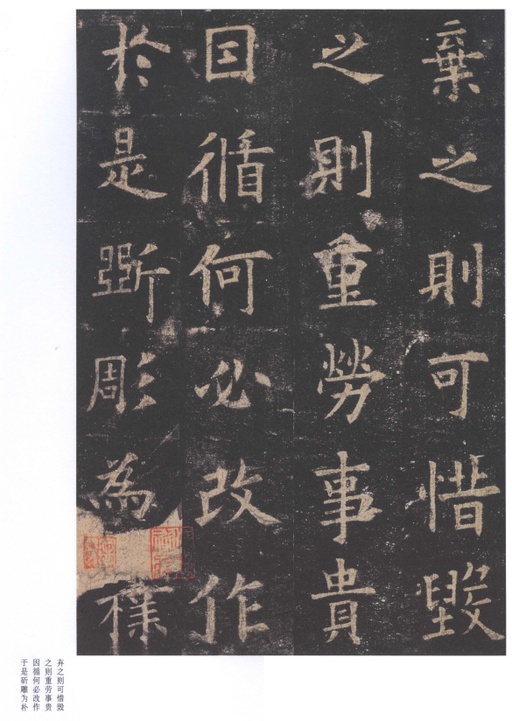 棄之則可惜毀
之則重勞事貴
因循何必改作
於是斲彫為樸
弃之则可惜毁
之则重劳事贵
因循何必改作
于是斫雕为朴